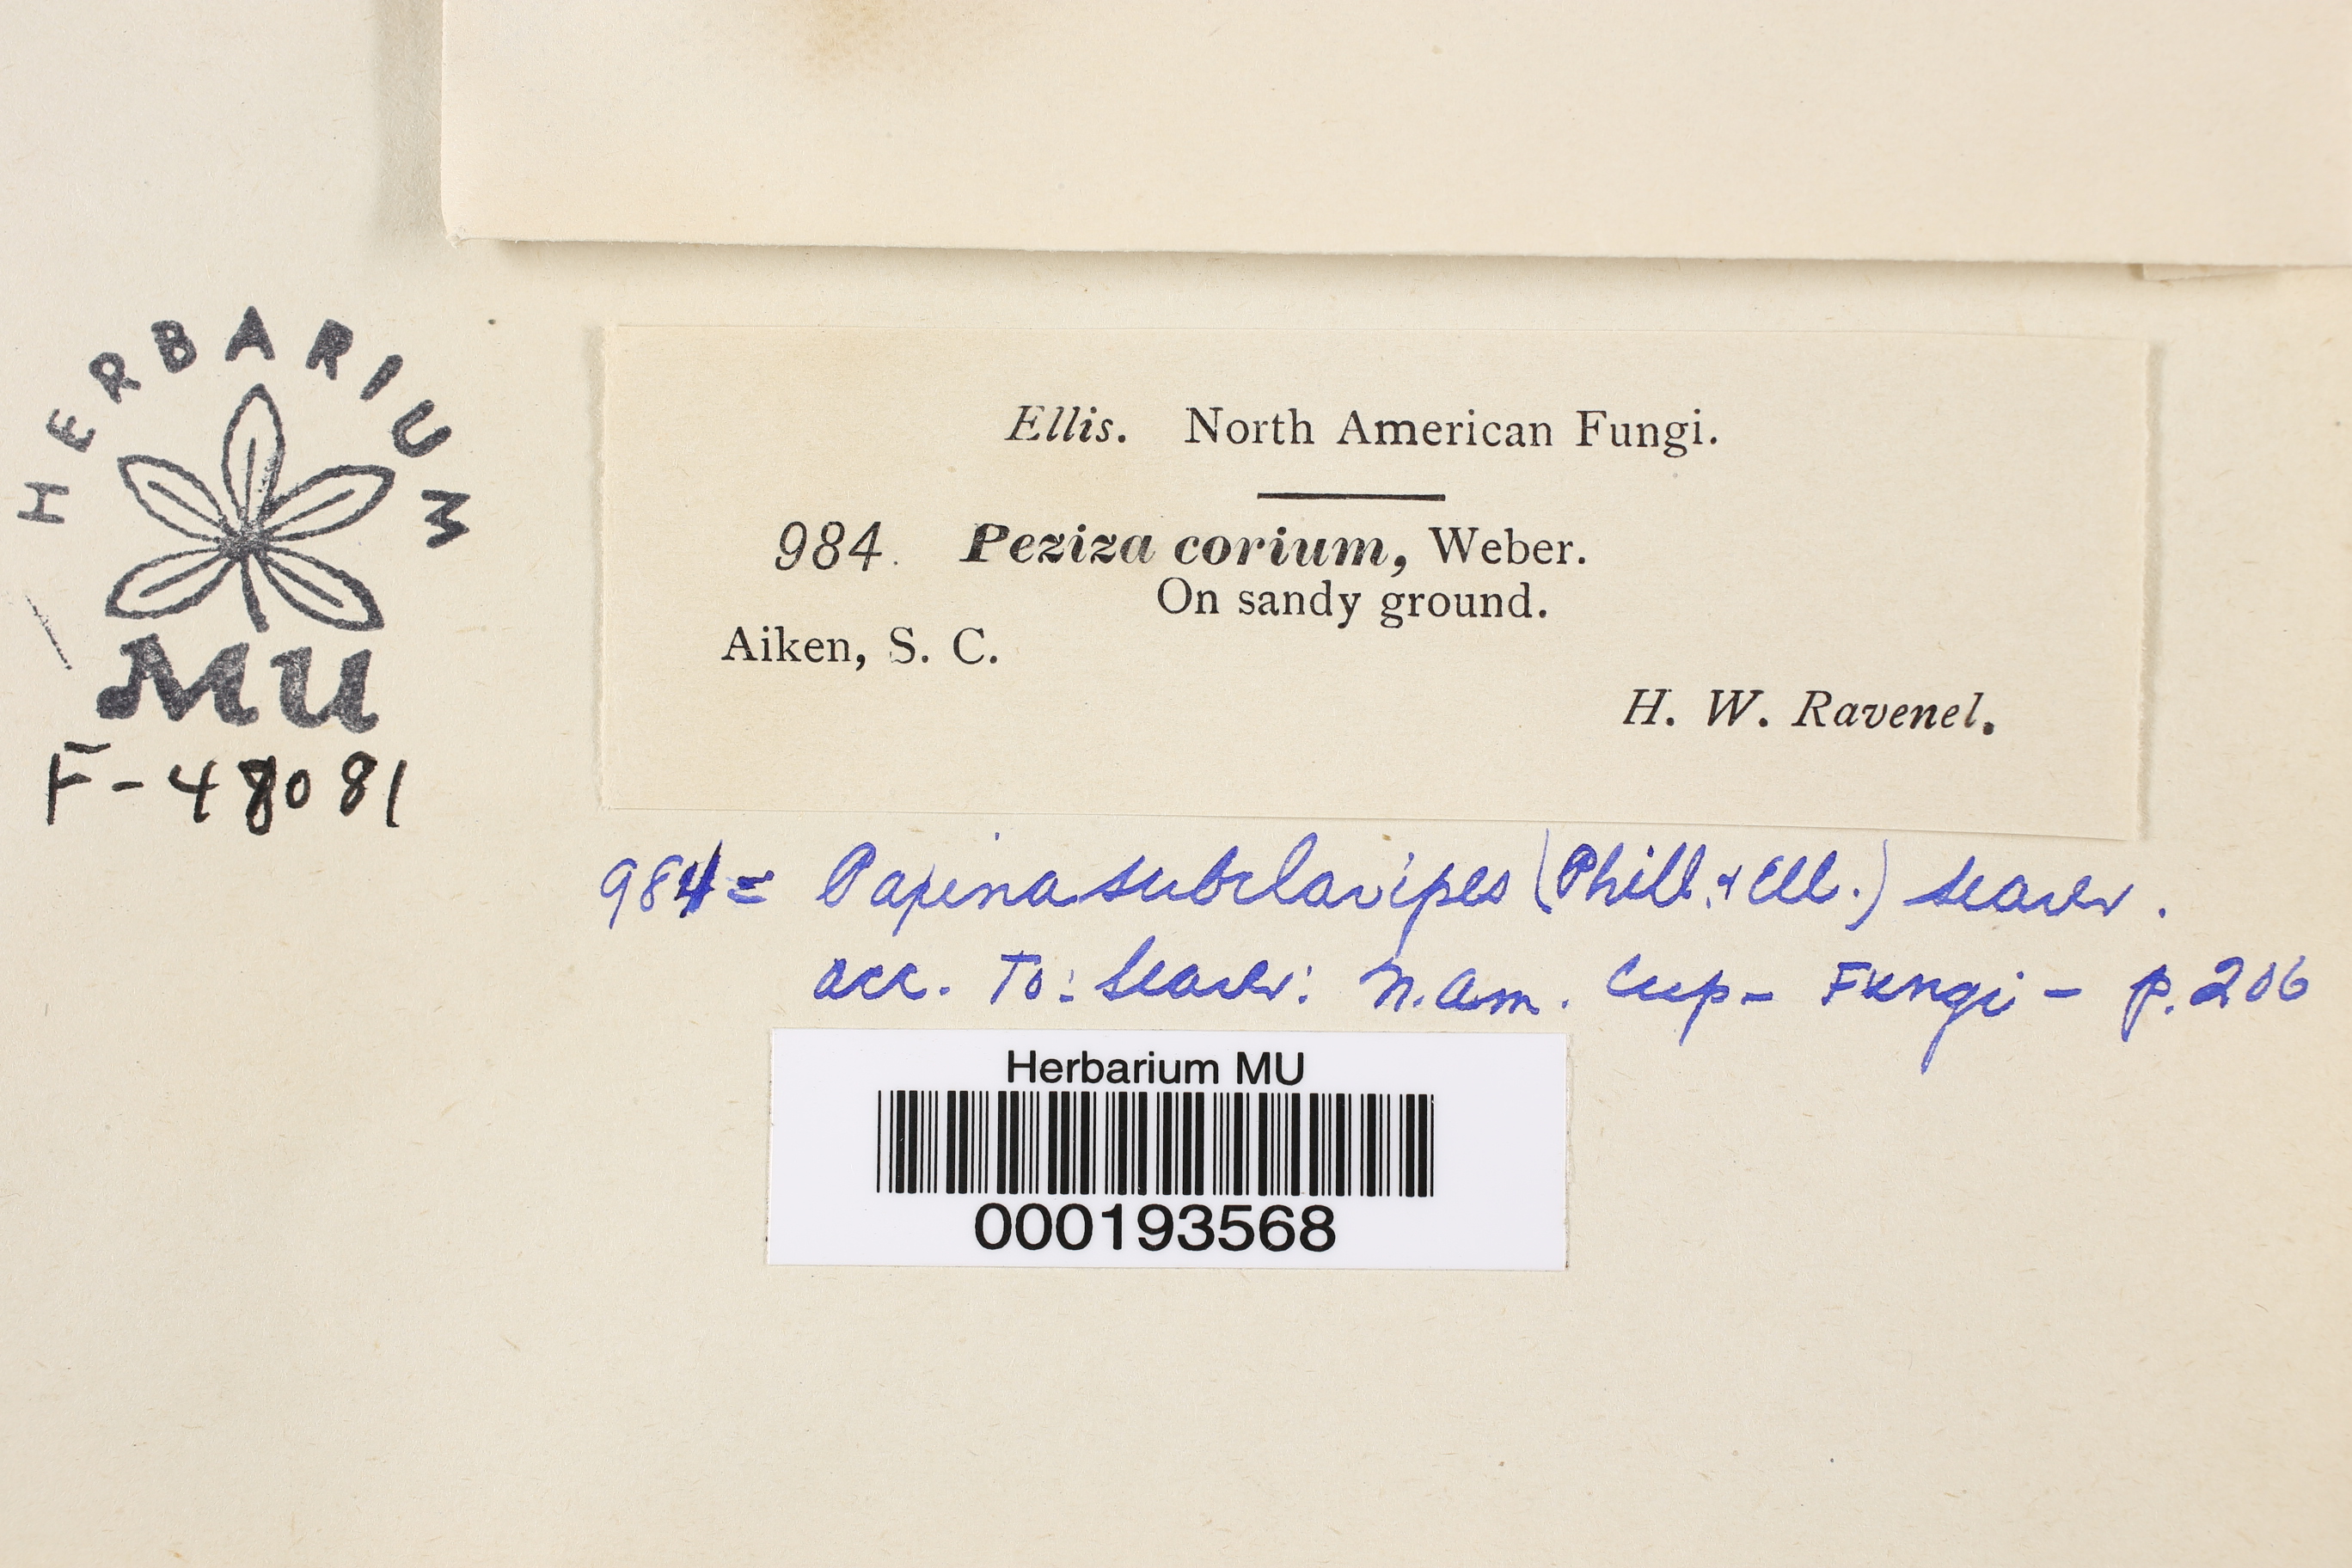 HERBARIUM
MU
F-48081
Ellis. North American Fungi.
984. Peziza corium, Weber.
On sandy ground.
Aiken, S. C.
H. W. Ravenel.
984 = Papina subclavipes (Phill. & Ell.) Seaver.
acc. To: Seaver: N. Am. Cup-Fungi - p. 206
Herbarium MU
000193568